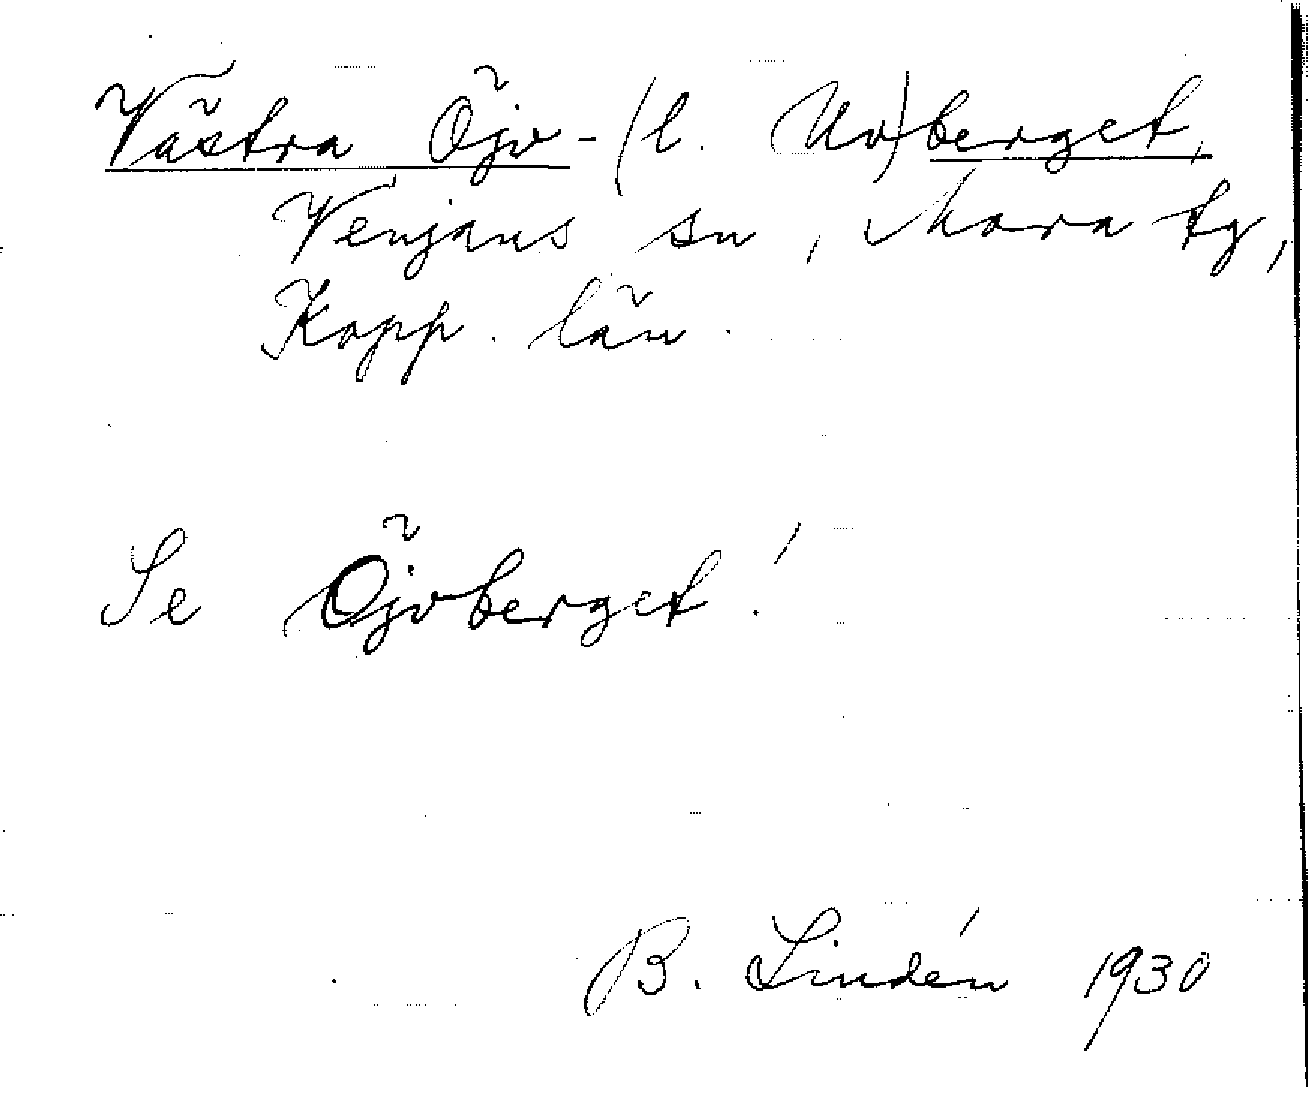 Västra Öjv- (l. Uv)berget,
Venjans sn, Mora tg,
Kopp. län.
Se Öjvberget!
B. Lindén 1930